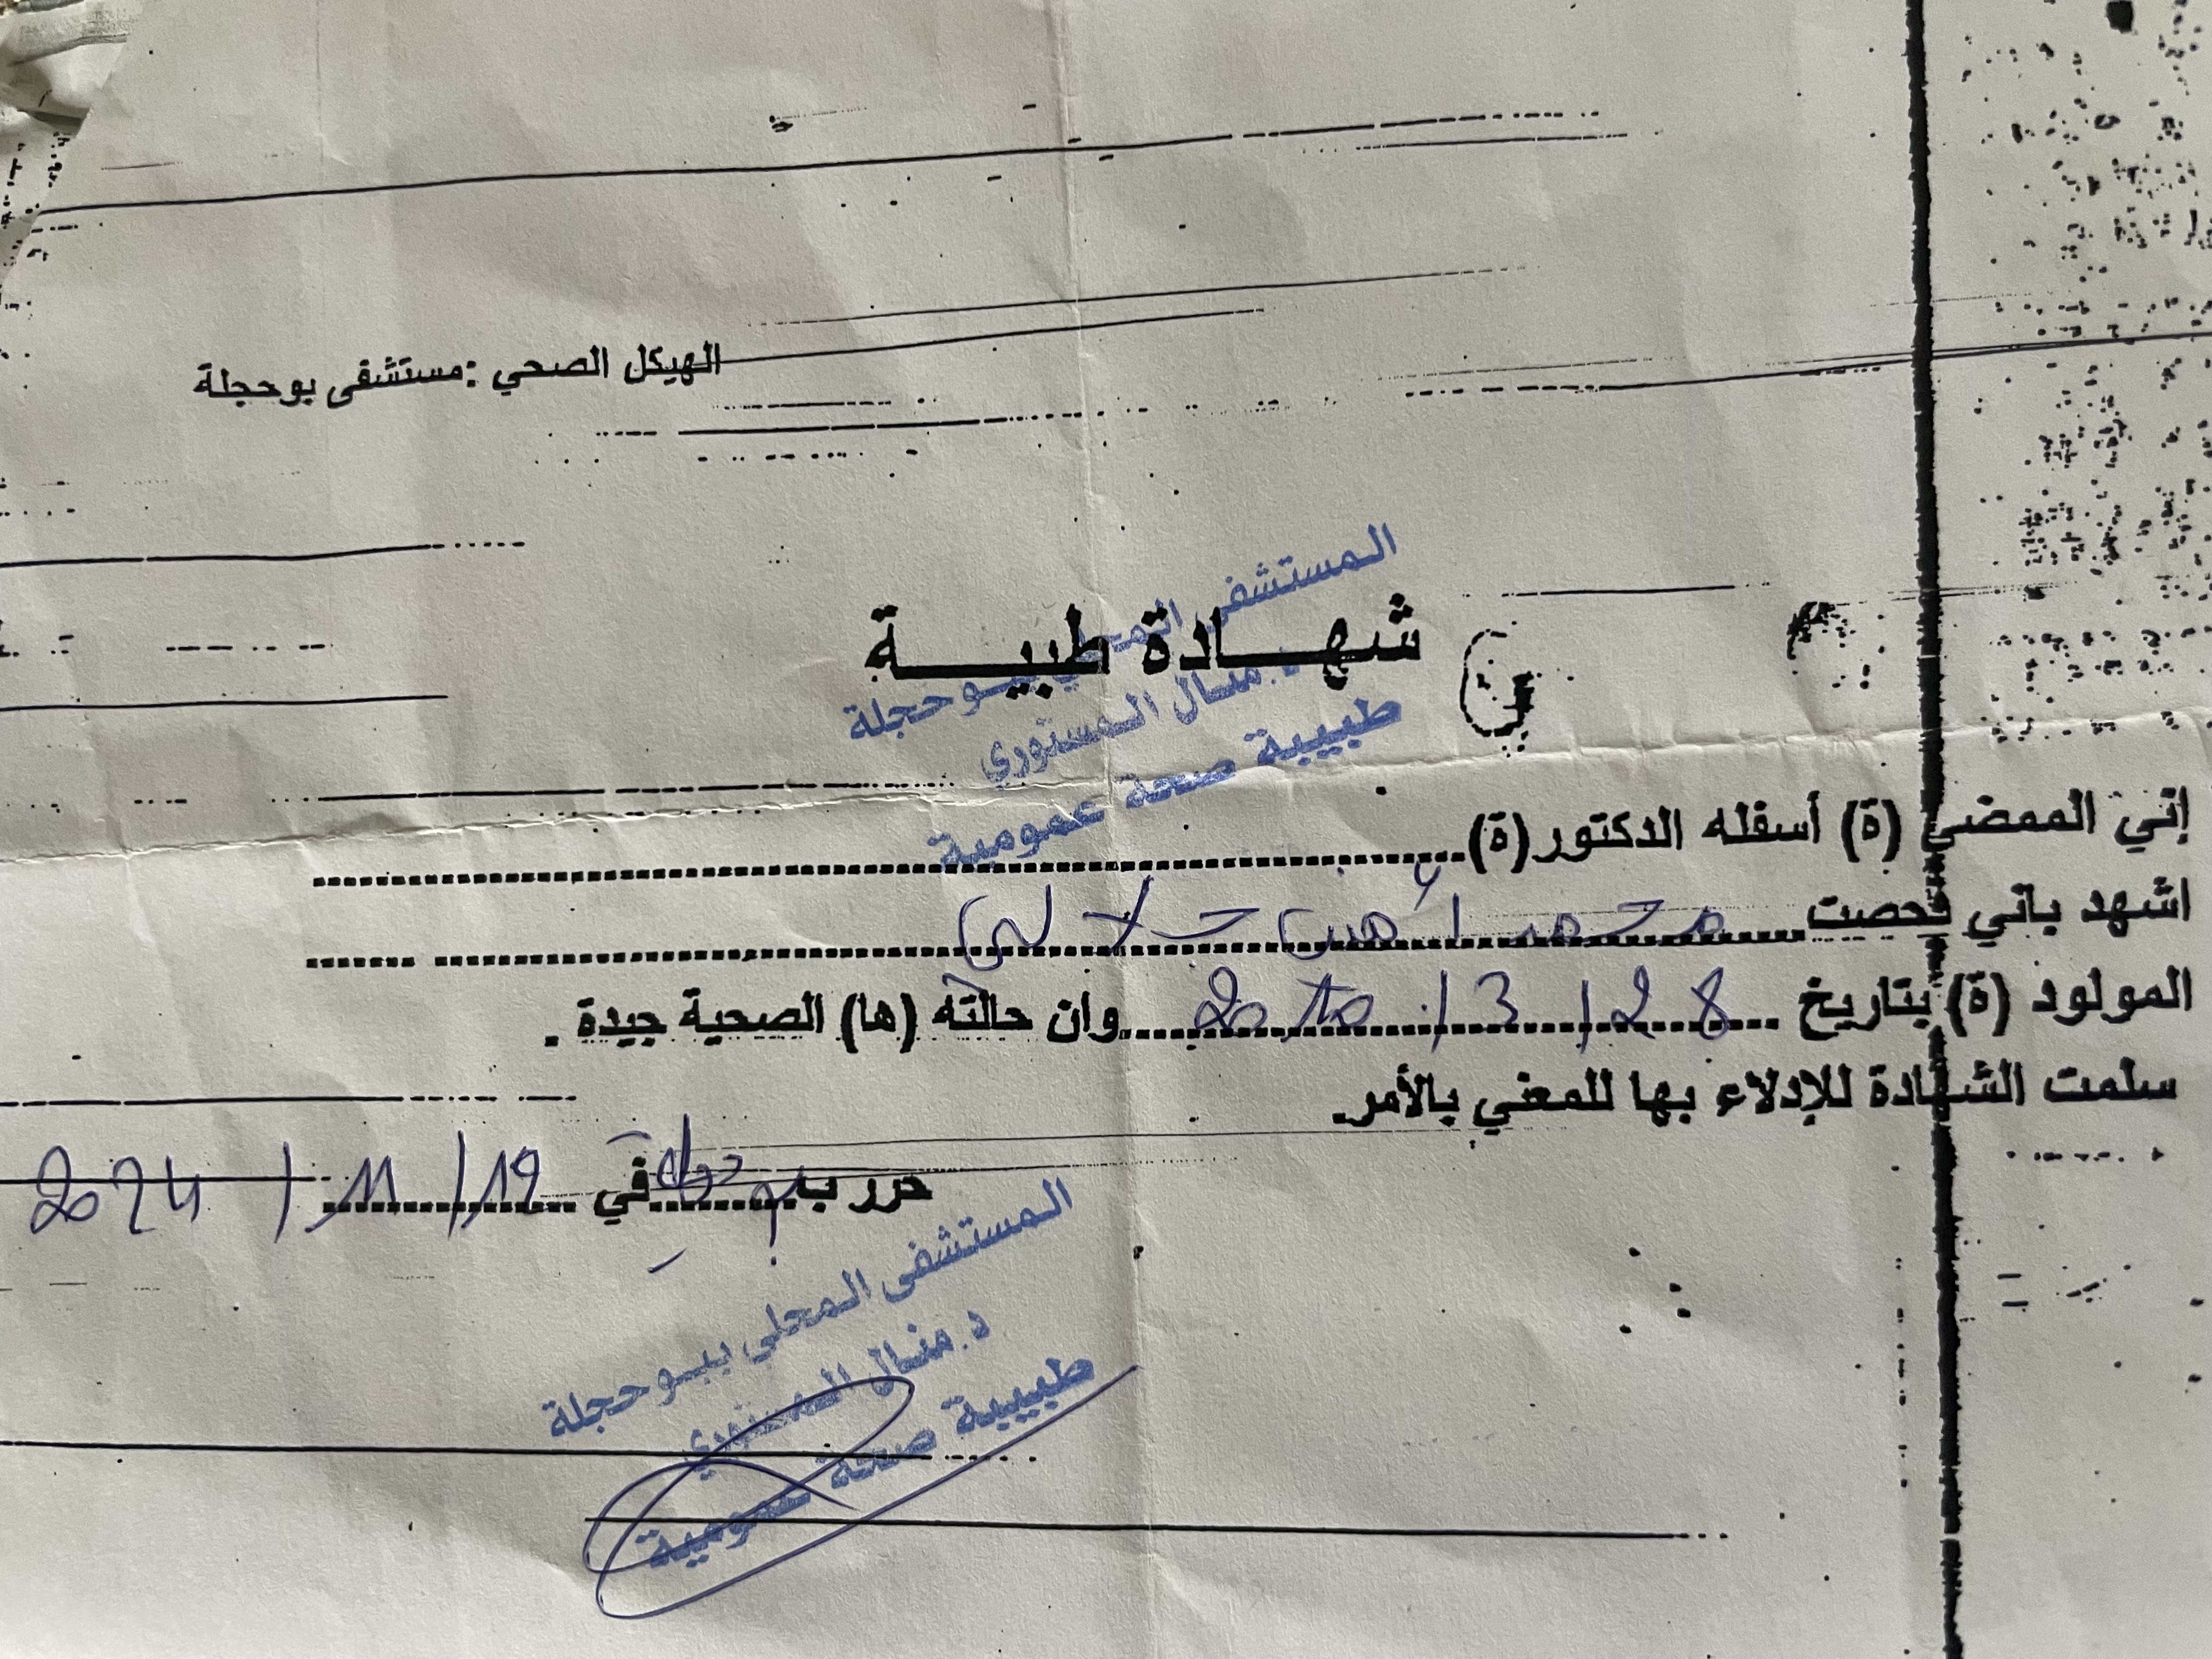 الهيكل الصحي : مستشفى بوحجلة
شهادة طبية
المستشفى المحلي ببوحجلة
د. منال المستوري
طبيبة صحة عمومية
إني الممضي (ة) أسفله الدكتور (ة)
اشهد باني فحصت محمد أمين جلالي
المولود (ة) بتاريخ 28 / 3 / 2010 وان حالته (ها) الصحية جيدة .
سلمت الشهادة للإدلاء بها للمعني بالأمر.
حرر ب بوحجلة في 19 / 11 / 2024
المستشفى المحلي ببوحجلة
د. منال المستوري
طبيبة صحة عمومية